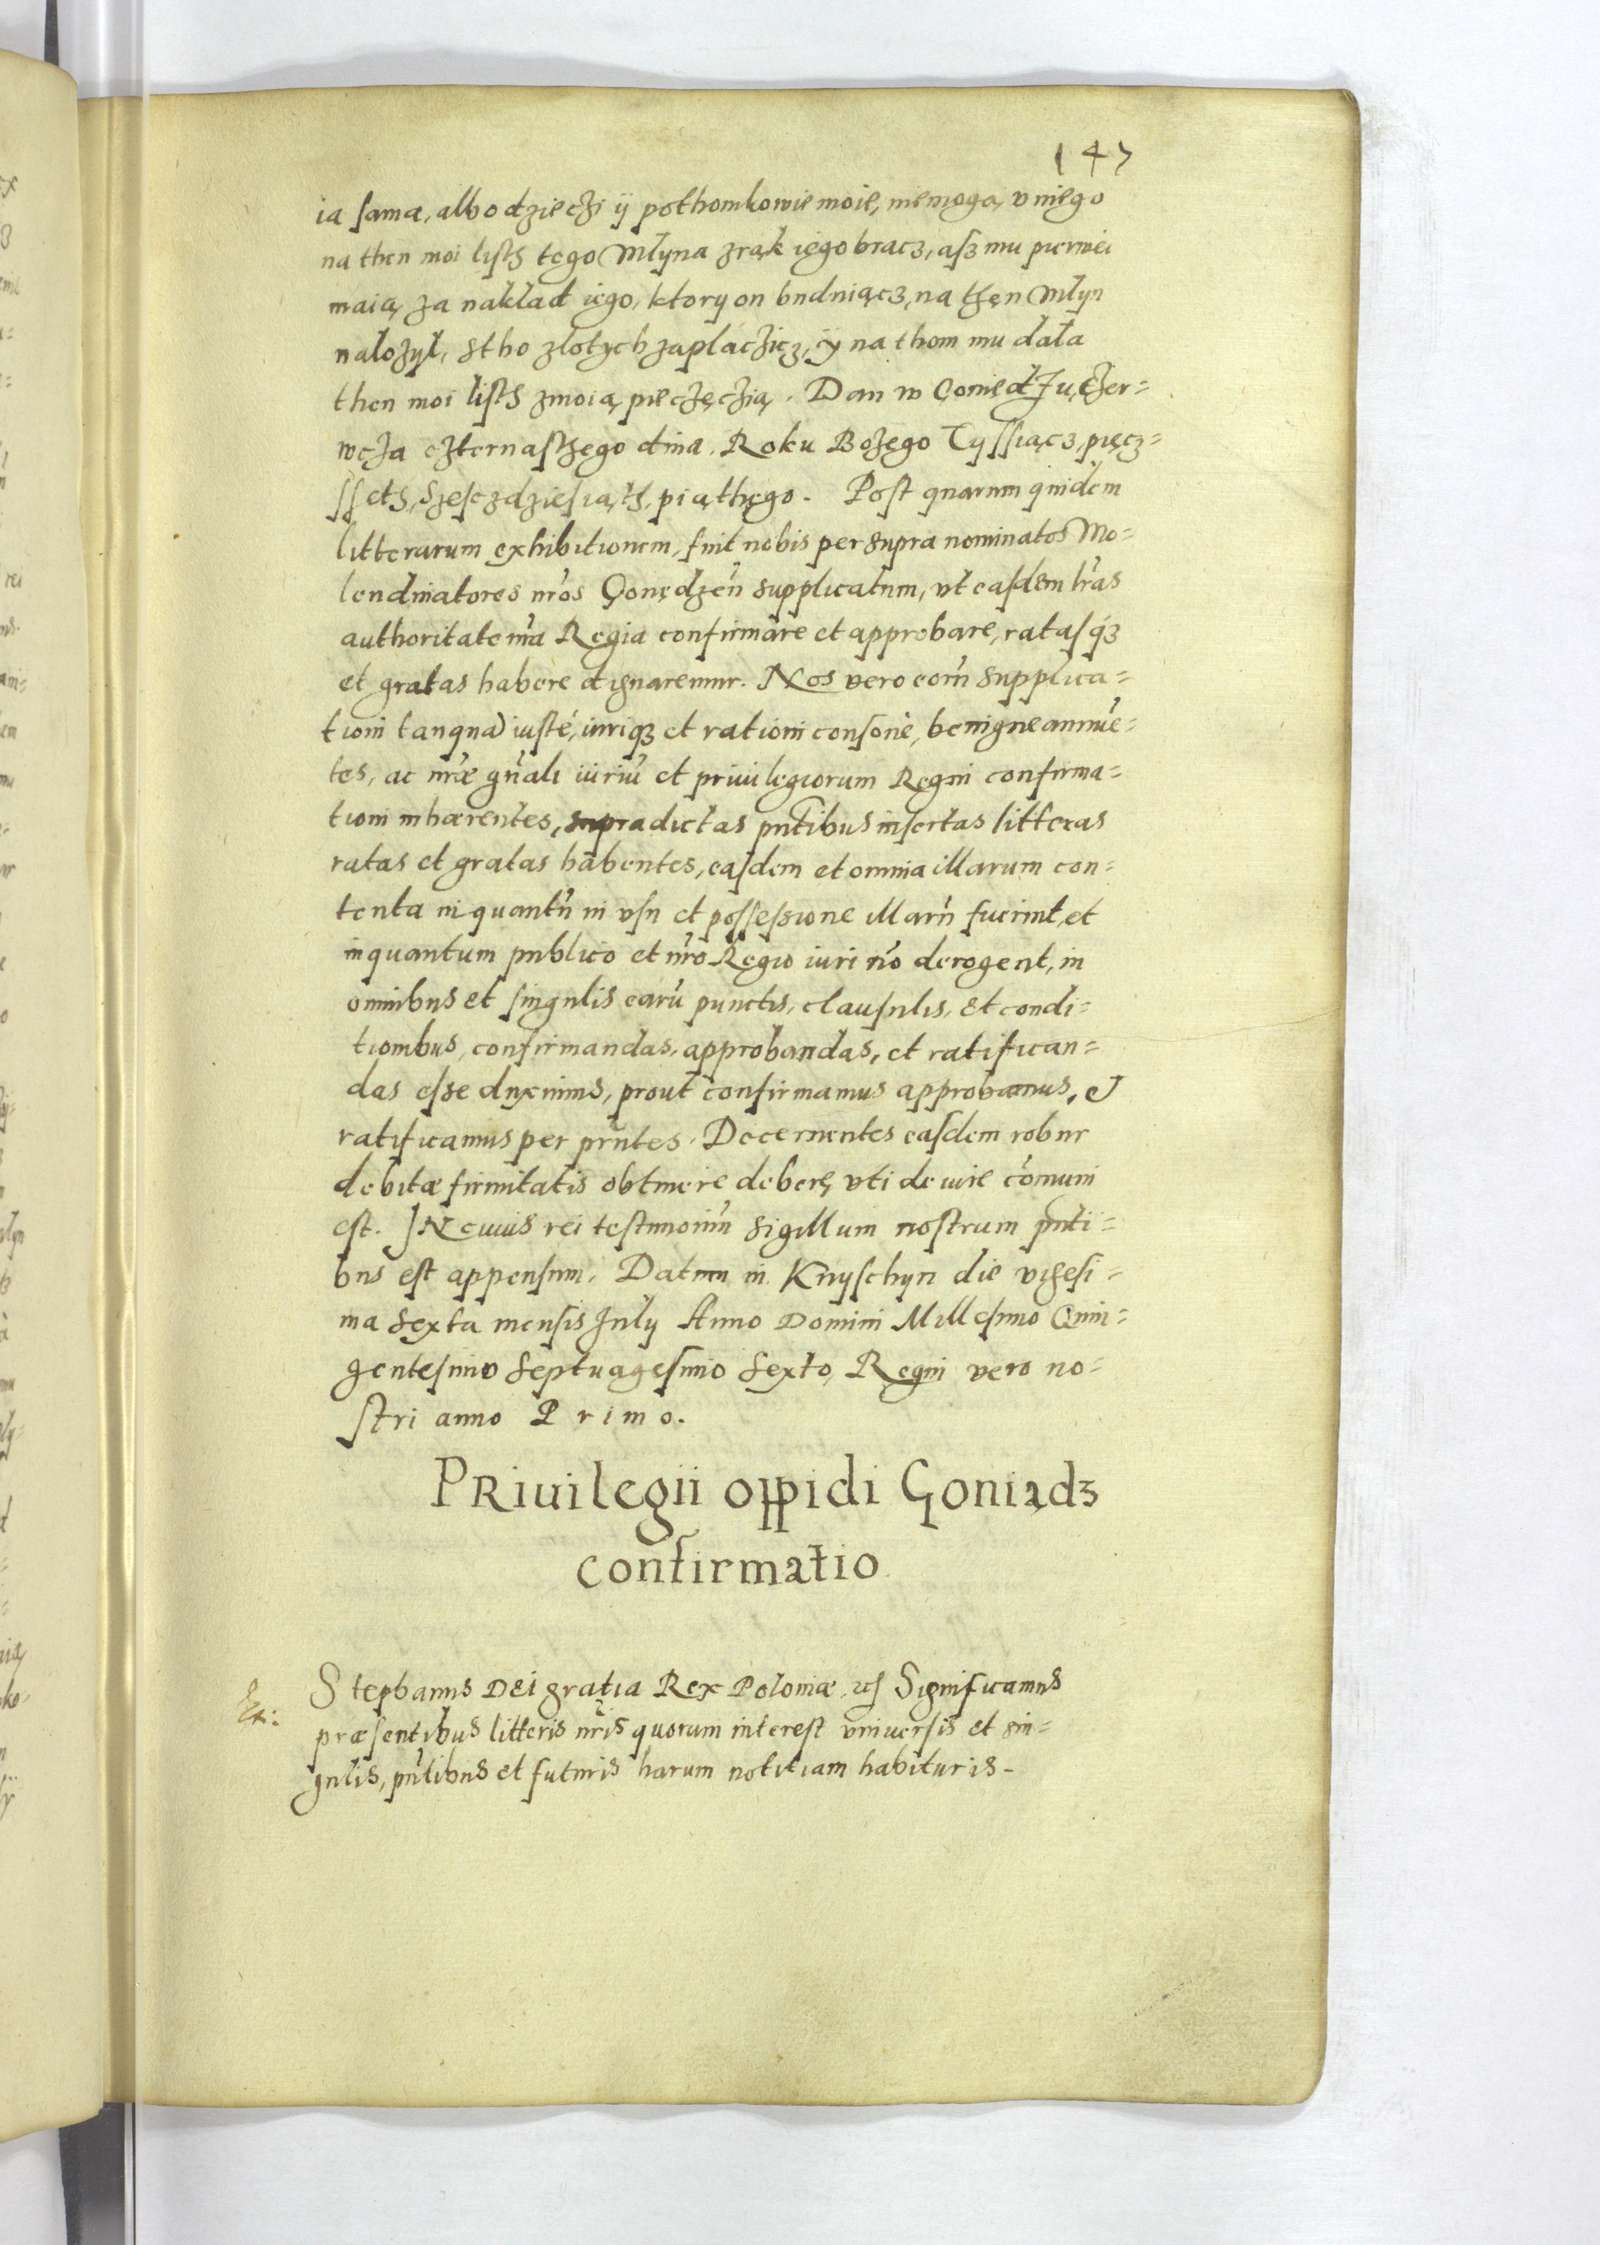 147
ia sama, albo dzieczi ÿ pothomkowie moie, niemogą, v niego
na then moi listh tego Młyna z rąk iego bracz, asz mu pierwei
maią za nakład iego, ktory on buduiącz, na then Młyn
nalożył, stho zlotych zaplaczicz, ÿ na thom mu dała
then moi listh z moią pieczęczią. Dan w Goniedzu, Czer=
wcza czternastego dnia, Roku Bożego Tyssiącz, pięcz=
sseth, szesczdziesiąth, piąthego. Post quarum quidem
litterarum exhibitionem, fuit nobis per supra nominatos Mo=
lendinatores nr̃os Goniędzeñ supplicatum, vt easdem lr̃as
authoritate nr̃a Regia confirmare et approbare, ratasq3
et gratas habere dignaremur. Nos vero eor̃u supplica=
tioni tanqua) iustę, iuriq3 et rationi consonę, benigne annuẽ=
tes, ac nr̃æ gñali iuriũ et priuilegiorum Regni confirma=
tioni inhærentes, supradictas pñtibus insertas litteras
ratas et gratas habentes, easdem et omnia illarum con=
tenta in quantũ in vsu et possessione illarũ fuerint, et
inquantum publico et nr̃o Regio iuri nõ derogent, in
omnibus et singulis earũ punctis, clausulis, et condi=
tionibus, confirmandas, approbandas, et ratifican=
das esse duximus, prout confirmamus approbamus, et
ratificamus per pñtes. Decernentes easdem robur
debitæ firmitatis obtinere debere, vti de iure cõmuni
est. IN cuius rei testimoniũ sigillum nostrum pñti=
bus est appensum. Datum in Knyschyn die vigesi=
ma sexta mensis Iuly Anno Domini Millesimo Quin=
gentesimo Septuagesimo Sexto, Regni vero no=
stri anno Primo.
PRiuilegii oppidi Goniądz
confirmatio
Stephanus DEi gratia Rex Poloniæ, etc Significamus
præsentibus litteris nr̃is quorum interest vniuersis et sin=
gulis, pñtibus et futuris harum notitiam habituris.